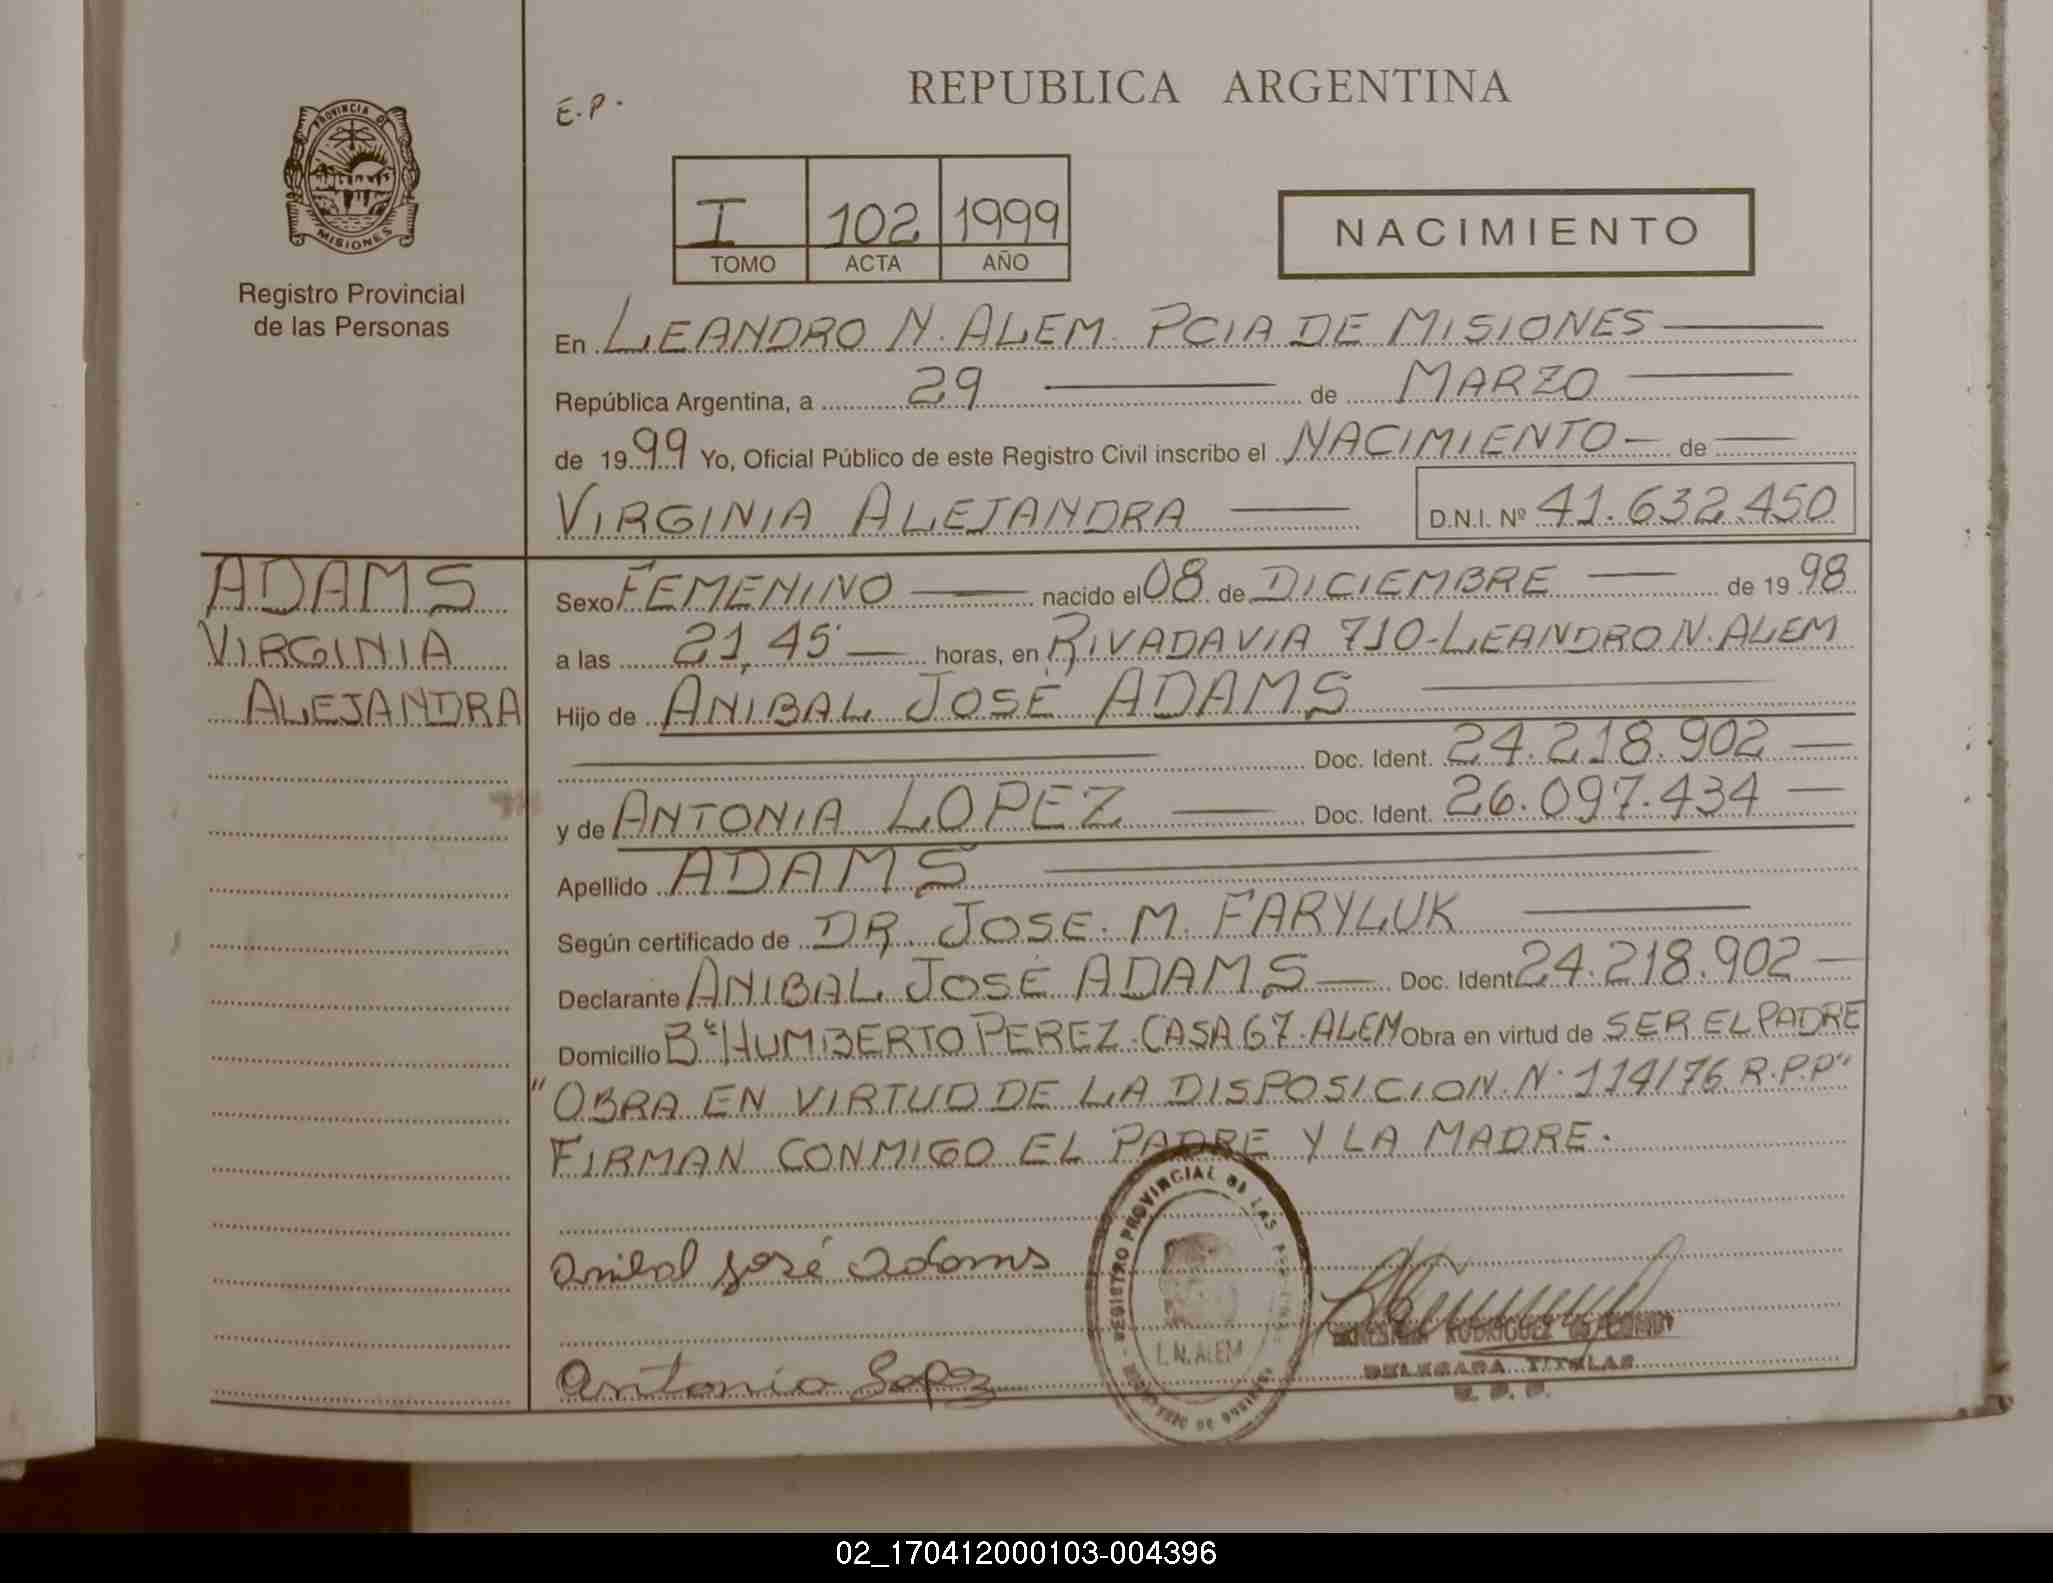 PROVINCIA DE
MISIONES
Registro Provincial
de las Personas
E.P.
REPUBLICA ARGENTINA
I 102 1999
TOMO ACTA AÑO
NACIMIENTO
En LEANDRO N. ALEM PCIA DE MISIONES
República Argentina, a 29 de MARZO
de 1999 Yo, Oficial Público de este Registro Civil inscribo el NACIMIENTO de
VIRGINIA ALEJANDRA D.N.I. Nº 41.632.450
ADAMS
VIRGINIA
ALEJANDRA
Sexo FEMENINO nacido el 08 de DICIEMBRE de 1998
a las 21,45 horas, en RIVADAVIA 710-LEANDRO N. ALEM
Hijo de ANIBAL JOSÉ ADAMS
Doc. Ident. 24.218.902
y de ANTONIA LOPEZ Doc. Ident. 26.097.434
Apellido ADAMS
Según certificado de DR. JOSE. M. FARYLUK
Declarante ANIBAL JOSÉ ADAMS Doc. Ident 24.218.902
Domicilio Bº HUMBERTO PEREZ. CASA 67. ALEM Obra en virtud de SER EL PADRE
"OBRA EN VIRTUD DE LA DISPOSICION. N. 114/76 R.P.P"
FIRMAN CONMIGO EL PADRE Y LA MADRE.
Anibal José Adams
Antonia Lopez
REGISTRO PROVINCIAL DE LAS
L.N. ALEM
RODRIGUEZ
DELEGADA TITULAR
02_170412000103-004396